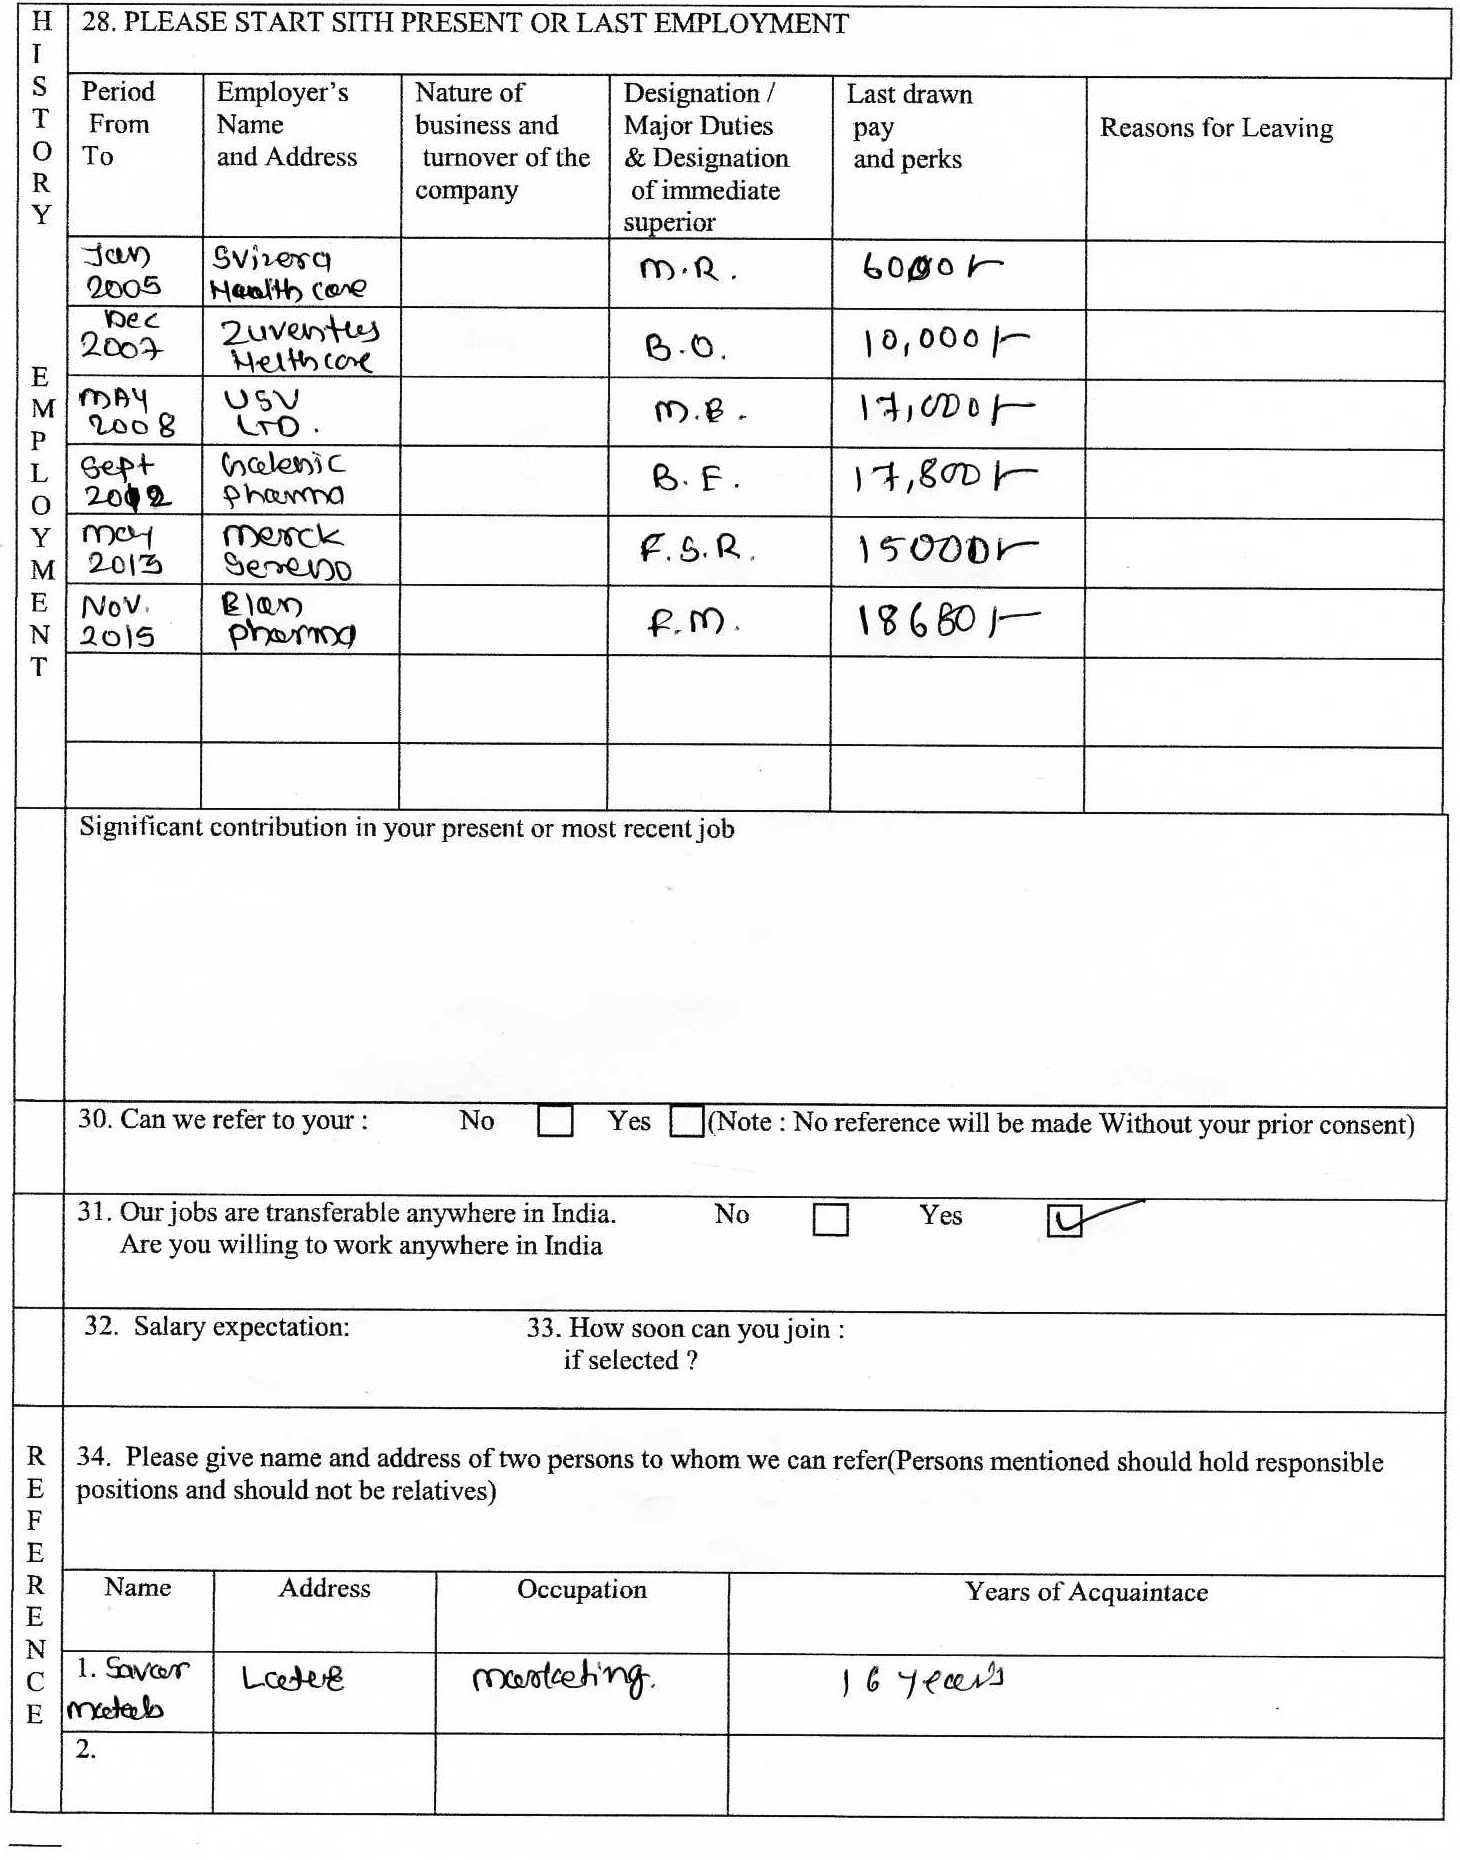 HISTORY
28. PLEASE START SITH PRESENT OR LAST EMPLOYMENT
Period From To
Employer's Name and Address
Nature of business and turnover of the company
Designation / Major Duties & Designation of immediate superior
Last drawn pay and perks
Reasons for Leaving
EMPLOYMENT
Jan 2005 Svizera Health care M.R. 6000/-
Dec 2007 Zuventus Helth care B.O. 10,000/-
MAY 2008 USV LTD. M.E. 17,000/-
Sept 2012 Galenic pharma B.E. 17,800/-
may 2013 Merck Sereno F.S.R. 15000/-
Nov. 2015 Elan pharma F.M. 18680/-
Significant contribution in your present or most recent job
30. Can we refer to your : No Yes (Note : No reference will be made Without your prior consent)
31. Our jobs are transferable anywhere in India. No Yes
Are you willing to work anywhere in India
32. Salary expectation: 33. How soon can you join :
if selected ?
REFERENCE
34. Please give name and address of two persons to whom we can refer(Persons mentioned should hold responsible
positions and should not be relatives)
Name Address Occupation Years of Acquaintace
1. marketing. 16 years
2.